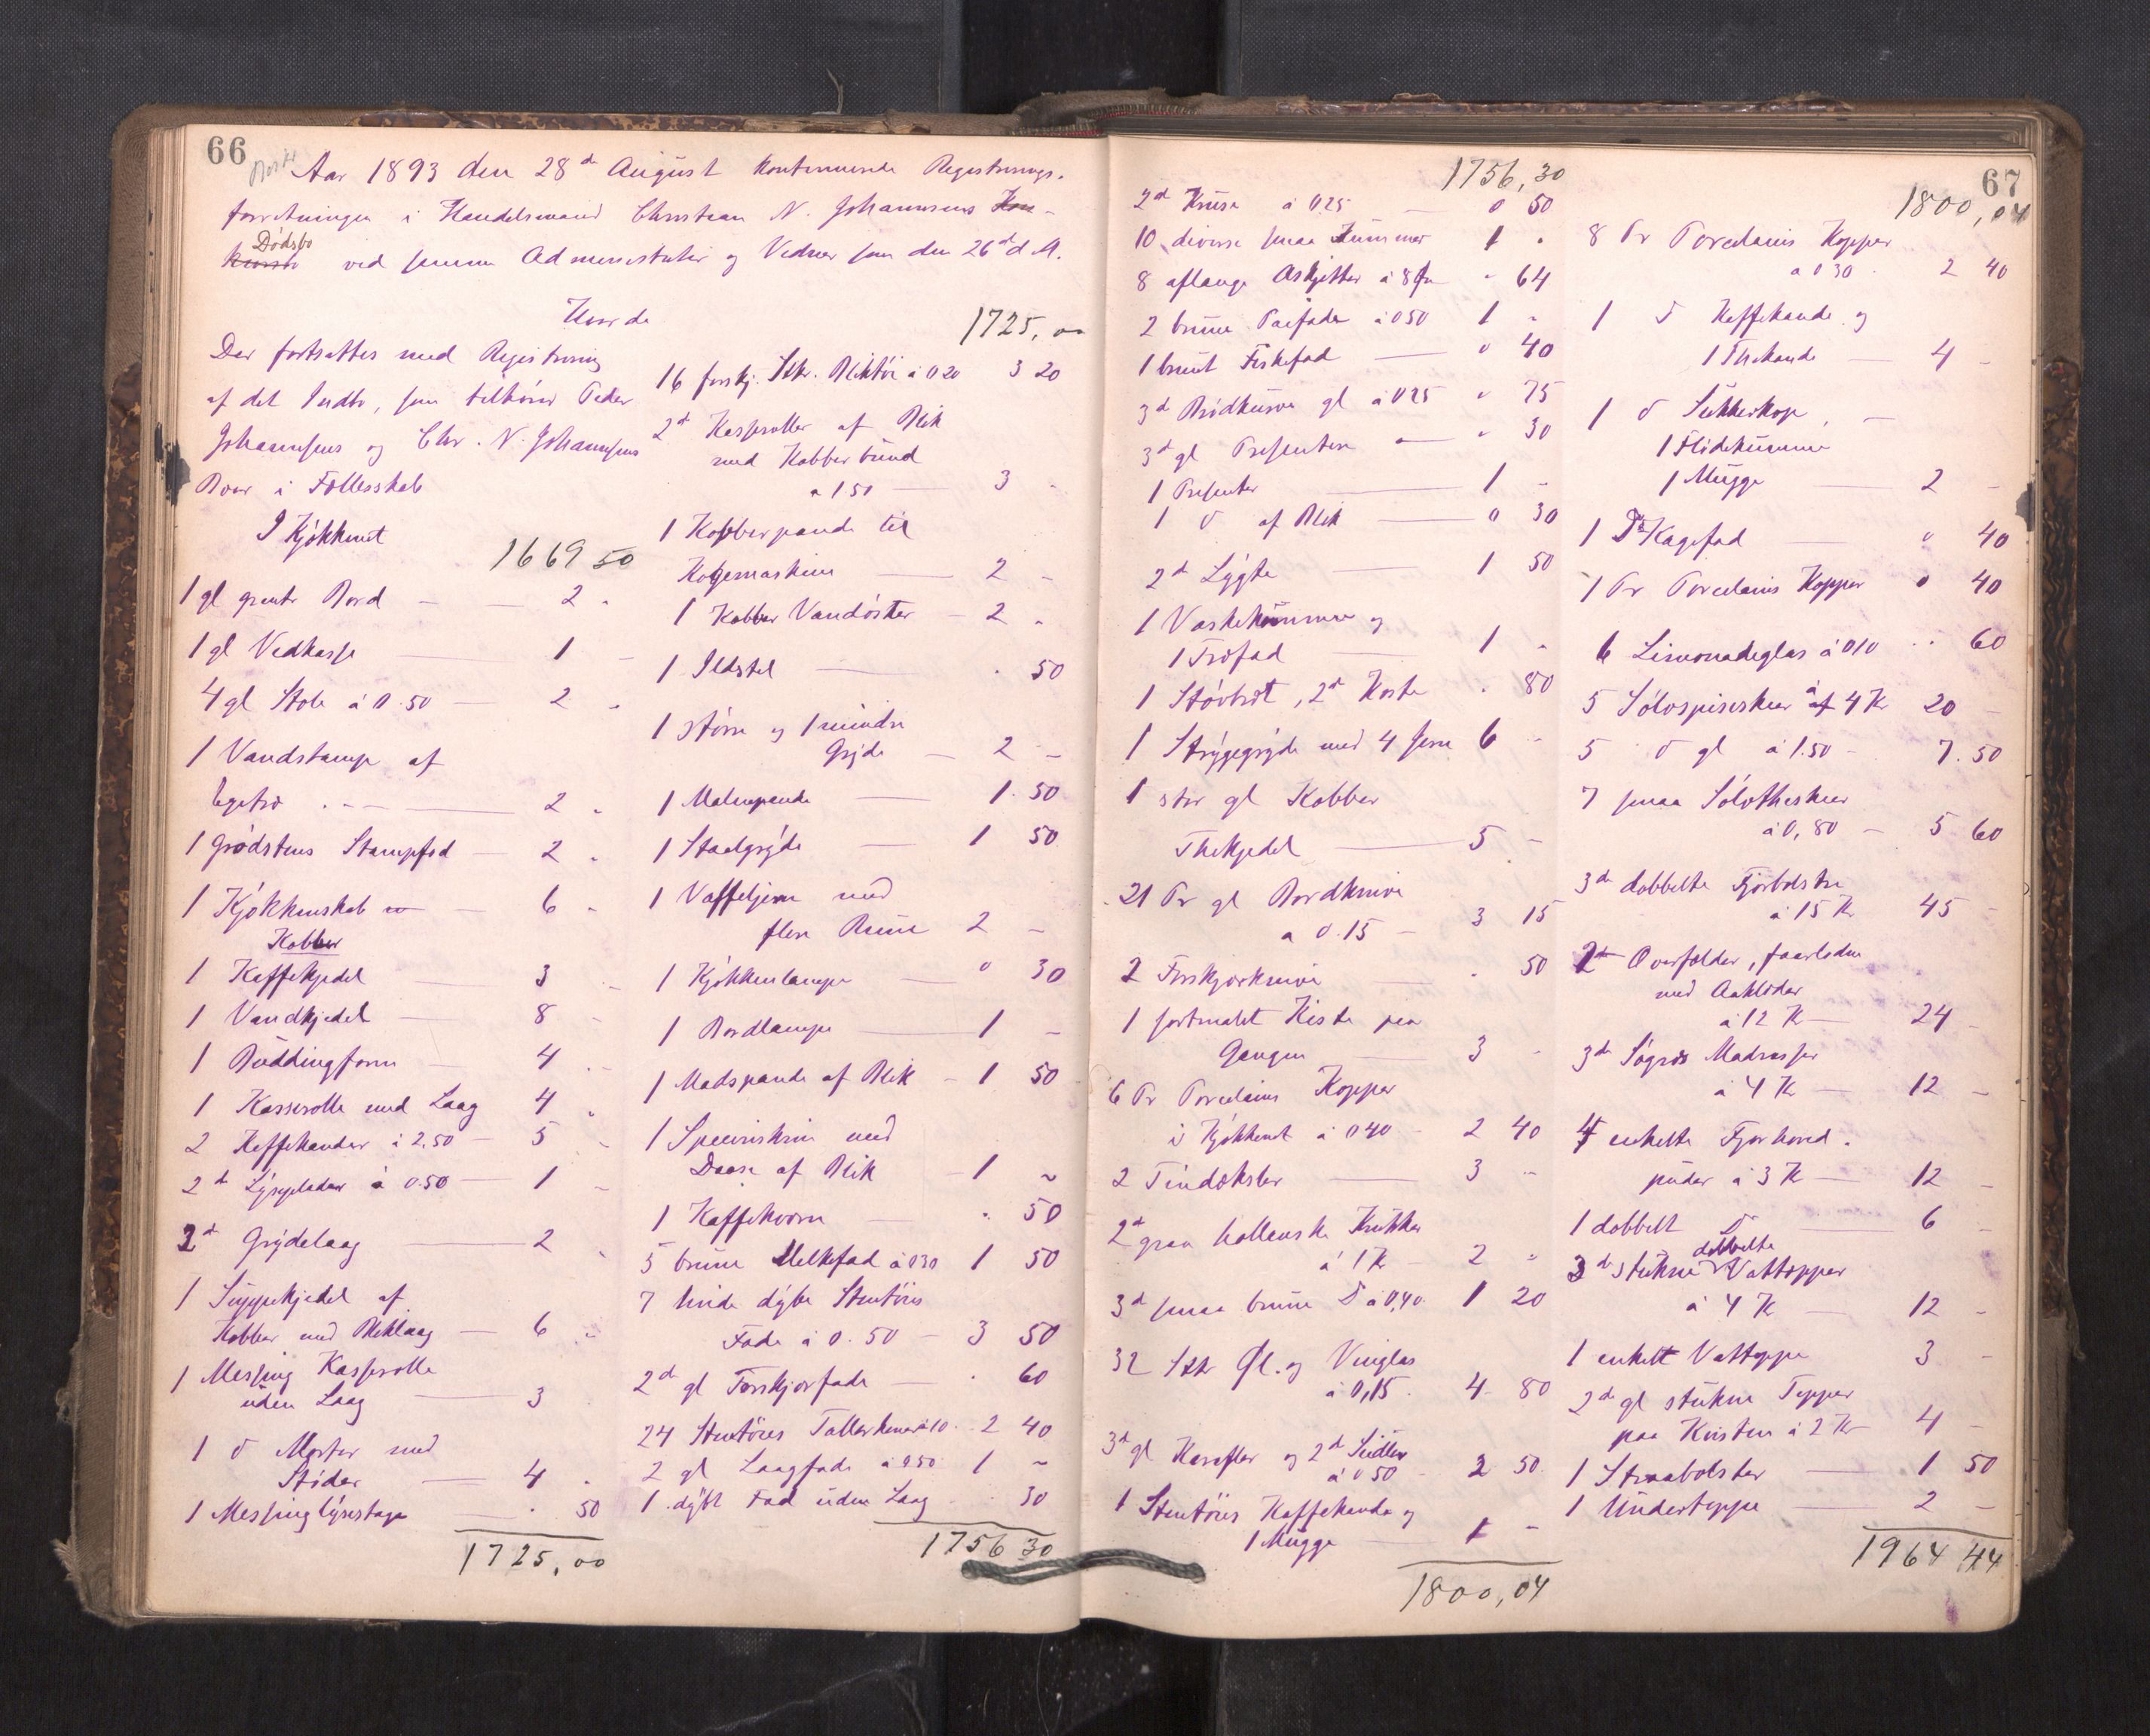 66
Aar 1893 den 28de August kontinuerede Registrerings-
forretningen i Handelsmand Christian N. Johannsens Kon-
kursbo Dödsbo ved samme Administrator og Vidner som den 26de d. M.
Hvorda
Der fortsattes med Registrering
af det Indbo, som tilhörer Peder
Johannsens og Chr. N. Johannsens
Boer i Fællesskab
I Kjökkenet
1669 50
1 gl grønt Bord — 2 "
1 gl Vedkasse — 1 -
4 gl Stole á 0.50 — 2 "
1 Vandstampe af
Egetræ — 2 "
1 Grödstens Stampfad — 2 "
1 Kjökkenskab — 6 "
Kobber
1 Kaffekjedel — 3 -
1 Vandkjedel — 8 -
1 Buddingform — 4 -
1 Kasserolle med Laag 4 "
2 Kaffekander á 2.50 — 5 -
2de Lyseplader á 0.50 — 1 -
2de Grydelaag — 2 "
1 Suppekjedel af
Kobber med Bliklaag — 6 "
1 Messing Kasserolle
uden Laag — 3
1 do Morter med
Stöder — 4 "
1 Messinglysestage — " 50
1725,00
1725,00
16 forskj. Stkr. Bliktöi á 0 20 3 20
2de Kasseroller af Blik
med Kobberbund
á 1 50 — 3 -
1 Kobberpande til
Kogemaskine — 2 -
1 Kobber Vandöster — 2 "
1 Ildstel — " 50
1 större og 1 mindre
Gryde — 2 -
1 Malmpande — 1.50
1 Staalgryde — 1 50
1 Vaffeljern med
flere Rum 2 -
1 Kjökkenlampe — 0 30
1 Bordlampe — 1 -
1 Madspande af Blik — 1 50
1 Speceriskrin med
Daase af Blik — 1 -
1 Kaffekværn — " 50
5 brune Melkefad á 0 30 1 50
7 hvide dybe Stentöis
Fade á 0.50 — 3 50
2de gl Forskjærfade — " 60
24 Stentöies Tallerkener á 10 2 40
2 gl Laagfade á 0 50 1 -
1 dybt Fad uden Laag " 30
1756 30
67
1756,30
2de Kruse á 0 25 — 0 50
10 diverse smaa Kummer 1 "
8 aflange Askjetter á 8 Øre " 64
2 brune Paifade á 0 50 1 "
1 brunt Fiskefad — 0 40
3de Brödkurve gl á 0 25 " 75
3de gl Presenter — " 30
1 Presenter — 1 -
1 do af Blik — 0 30
2de Lygte — 1 50
1 Vaskekumme og
1 Træfad — 1 "
1 Stövbræt, 2de Koste " 80
1 Strygegryde med 4 Jern 6 -
1 stor gl Kobber
Thekjedel — 5 -
21 Pr gl Bordknive
á 0.15 — 3 15
2 Forskjærknive — " 50
1 sortmalt Kiste paa
Gangen — 3 -
6 Pr Porcelains Kopper
i Kjökkenet á 0 40 — 2 40
2 Tindökster — 3 -
2de graa hollenske Krukker
á 1 Kr — 2 "
3de smaa brune Do á 0,40 1 20
32 Stk Öl. og Vinglas
á 0,15 . 4 80
3de gl Karafler og 2de Seidler
á 0 50 — 2 50
1 Stentöies Kaffekande og
1 Mugge — 1 -
1800,04
1800,04
8 Pr Porcelains Kopper
á 0 30 . 2 40
1 do Kaffekande og
1 Thekande — 4 -
1 do Sukkerkop, —
1 Flödekumme
1 Mugge — 2 -
1 Do Kagefad — 0 40
1 Pr Porcelains Kopper 0 40
6 Limonadeglas á 0 10 " 60
5 Sölvspiseskeer á 4 Kr 20 -
5 do gl á 1.50 — 7.50
7 smaa Sölvtheskeer
á 0,80 — 5 60
3de dobbelte Fjærbolstre
á 15 Kr 45 -
2de Overfelder, faarladne
med Aaklæder
á 12 Kr — 24 -
3de Sögræs Madrasser
á 4 Kr — 12 -
4 enkelte Fjærhoved-
puder á 3 Kr — 12 -
1 dobbelt Do — 6 -
3de stukne dobbelte Vattepper
á 4 Kr — 12 -
1 enkelt Vatteppe 3 -
2de gl stukne Tepper
paa Kvisten á 2 Kr 4 -
1 Straabolster — 1 50
1 Underteppe — 2 -
1964 44